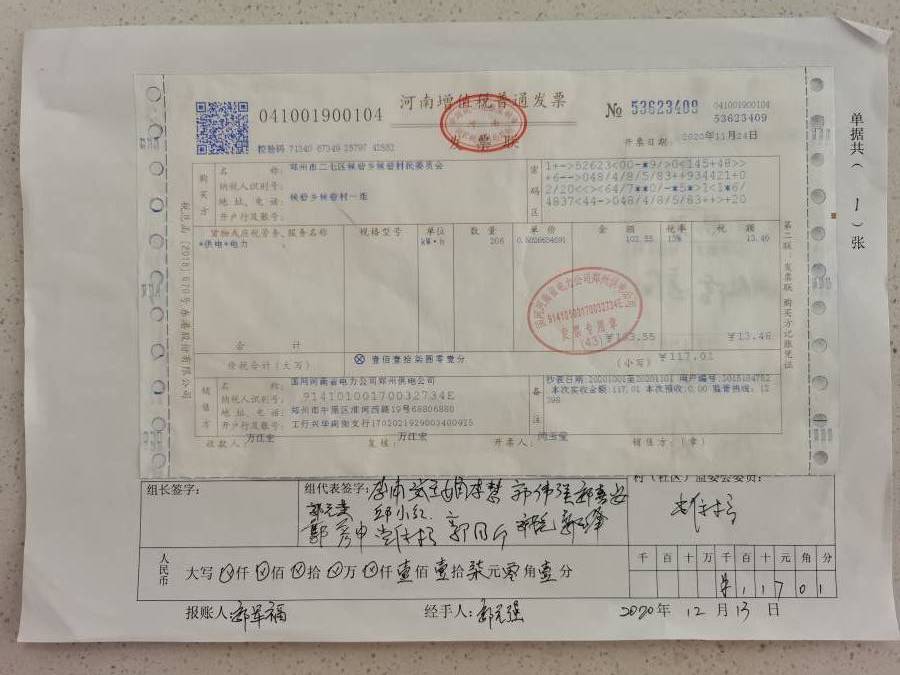 041001900104
河南增值税普通发票
发票联
№ 53623409
041001900104
53623409
校验码 71340 67349 25797 42551
开票日期: 2020年11月24日
购买方
名 称: 郑州市二七区候砦乡候砦村民委员会
纳税人识别号:
地 址、电 话: 候砦乡候砦村一组
开户行及账号:
密码区
1+->52623<00-*9/>0<145+48>>
+6-->048/4/8/5/83++934421+0
2/20<><>64/7**0/-*5*>1<1*6/
4837<44->048/4/8/5/83+>+>+20
货物或应税劳务、服务名称 规格型号 单位 数 量 单 价 金 额 税率 税 额
*供电*电力 kW·h 206 103.55 13% 13.46
国网河南省电力公司郑州供电公司
91410100170032734E
发票专用章
(43)
合 计 ¥103.55 ¥13.46
价税合计(大写) ⊗壹佰壹拾柒圆零壹分 (小写) ¥117.01
销售方
名 称: 国网河南省电力公司郑州供电公司
纳税人识别号: 91410100170032734E
地 址、电 话: 郑州市中原区淮河西路19号68806880
开户行及账号: 工行兴华南街支行1702021929003400915
备注
抄表日期:20201001至20201101 用户编号:3015104752
本次实收金额:117.01 本次预收:0.00 监督热线:12
398
收款人: 万江宏 复核: 万江宏 开票人: 销售方:(章)
第二联:发票联 购买方记账凭证
单据共( 1 )张
组长签字:
组代表签字:
村(社区)监委会委员:
人民币
大写 ⊗仟 ⊗佰 ⊗拾 ⊗万 ⊗仟 壹佰 壹拾 柒元 零角 壹分
千 百 十 万 千 百 十 元 角 分
¥ 1 1 7 0 1
报账人:
经手人:
2020年 12月 13日